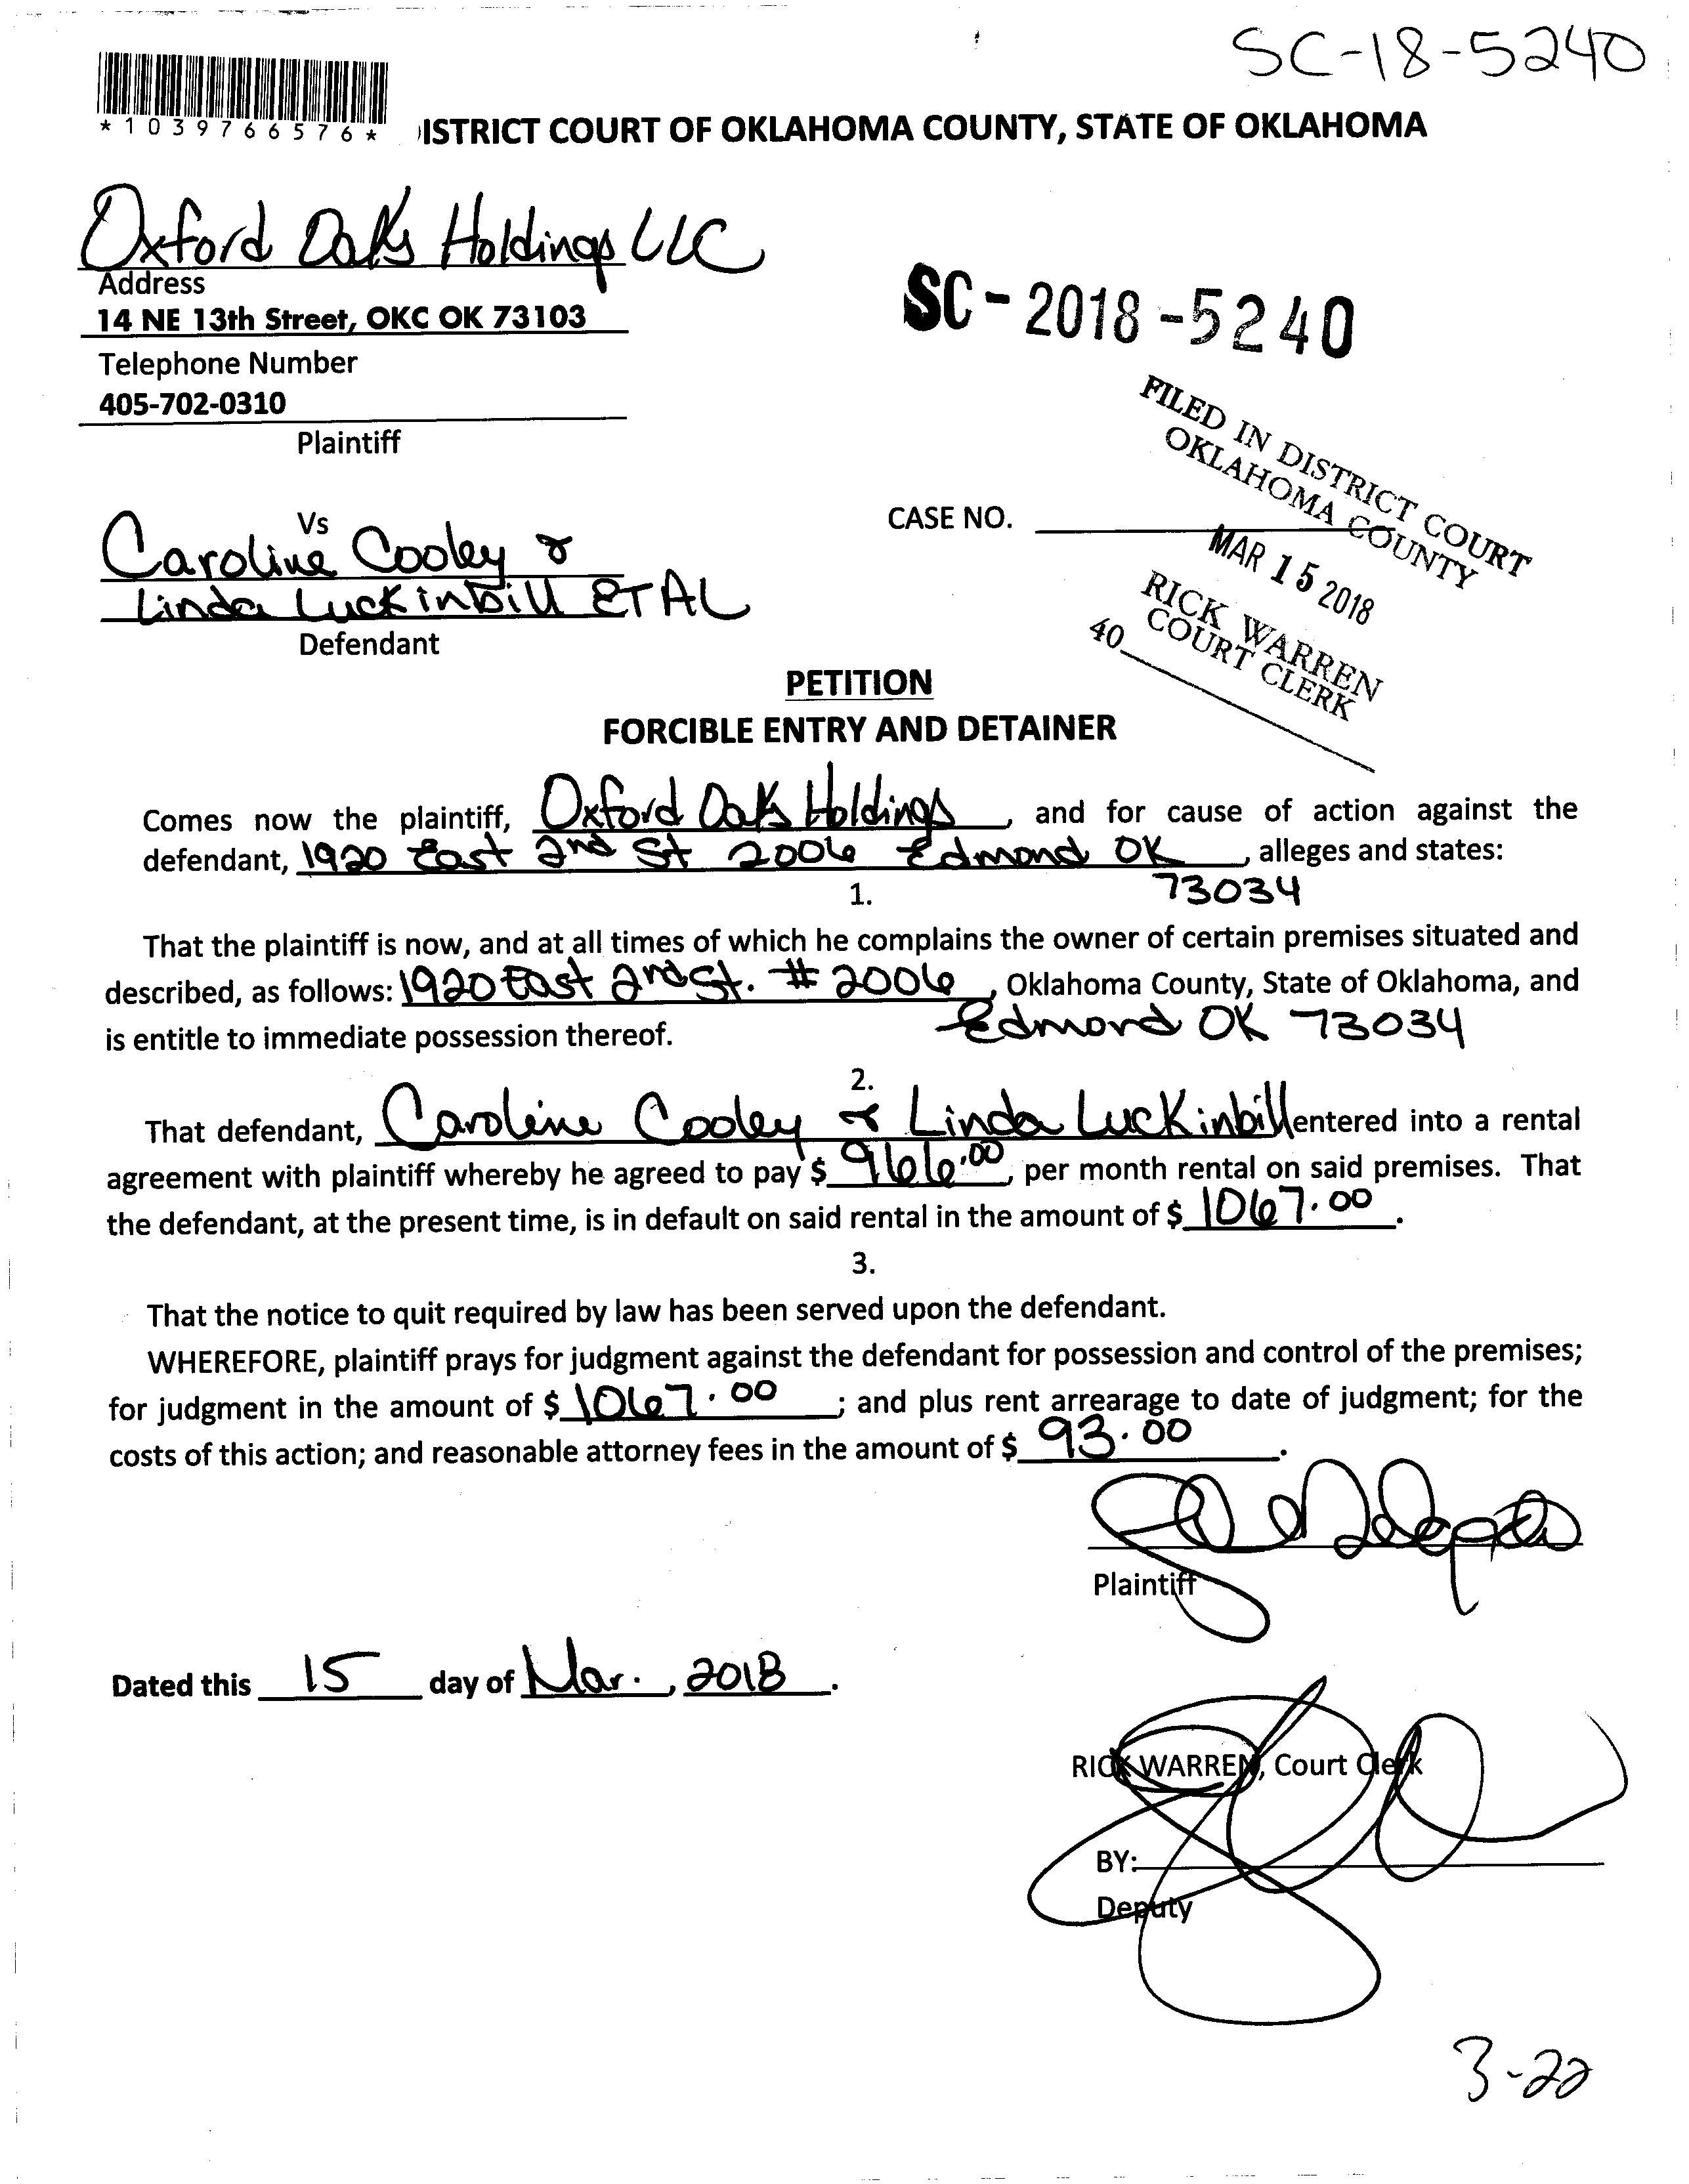 SC-18-5240
*1039766576*
ISTRICT COURT OF OKLAHOMA COUNTY, STATE OF OKLAHOMA
Oxford Oaks Holdings LLC
Address
14 NE 13th Street, OKC OK 73103
SC-2018-5240
Telephone Number
405-702-0310
Plaintiff
FILED IN DISTRICT COURT
OKLAHOMA COUNTY
MAR 15 2018
RICK WARREN
COURT CLERK
40
Vs
CASE NO.
Caroline Cooley &
Linda Luckinbill ET AL
Defendant
PETITION
FORCIBLE ENTRY AND DETAINER
Comes now the plaintiff, Oxford Oaks Holdings, and for cause of action against the
defendant, 1920 East 2nd St 2006 Edmond OK, alleges and states:
73034
1.
That the plaintiff is now, and at all times of which he complains the owner of certain premises situated and
described, as follows: 1920 East 2nd St. # 2006, Oklahoma County, State of Oklahoma, and
Edmond OK 73034
is entitle to immediate possession thereof.
2.
That defendant, Caroline Cooley & Linda Luckinbill entered into a rental
agreement with plaintiff whereby he agreed to pay $ 966.00, per month rental on said premises. That
the defendant, at the present time, is in default on said rental in the amount of $ 1067.00.
3.
That the notice to quit required by law has been served upon the defendant.
WHEREFORE, plaintiff prays for judgment against the defendant for possession and control of the premises;
for judgment in the amount of $ 1067.00; and plus rent arrearage to date of judgment; for the
costs of this action; and reasonable attorney fees in the amount of $ 93.00.
Plaintiff
Dated this 15 day of Mar., 2018.
RICK WARREN, Court Clerk
BY:
Deputy
3-22